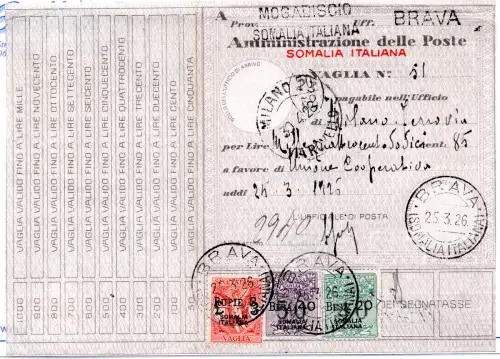 A
Prov. Uff.
MOGADISCIO
SOMALIA ITALIANA
BRAVA
Amministrazione delle Poste
SOMALIA ITALIANA
VAGLIA N° 51
pagabile nell'Ufficio
di Milano Ferrovia
per Lire Mille quattrocento dodici cent: 85
a favore di Unione Cooperativa
addì 25. 3. 1926
L'UFFICIALE DI POSTA
MILANO
BRAVA
25.3.26
(SOMALIA ITALIANA)
VAGLIA VALIDO FINO A LIRE MILLE
VAGLIA VALIDO FINO A LIRE NOVECENTO
VAGLIA VALIDO FINO A LIRE OTTOCENTO
VAGLIA VALIDO FINO A LIRE SETTECENTO
VAGLIA VALIDO FINO A LIRE SEICENTO
VAGLIA VALIDO FINO A LIRE CINQUECENTO
VAGLIA VALIDO FINO A LIRE QUATTROCENTO
VAGLIA VALIDO FINO A LIRE TRECENTO
VAGLIA VALIDO FINO A LIRE DUECENTO
VAGLIA VALIDO FINO A LIRE CENTO
VAGLIA VALIDO FINO A LIRE CINQUANTA
BRAVA
RUPIE
SOMALIA
ITALIANA
VAGLIA
SOMALIA
ITALIANA
BESE 20
SOMALIA
ITALIANA
SEGNATASSE